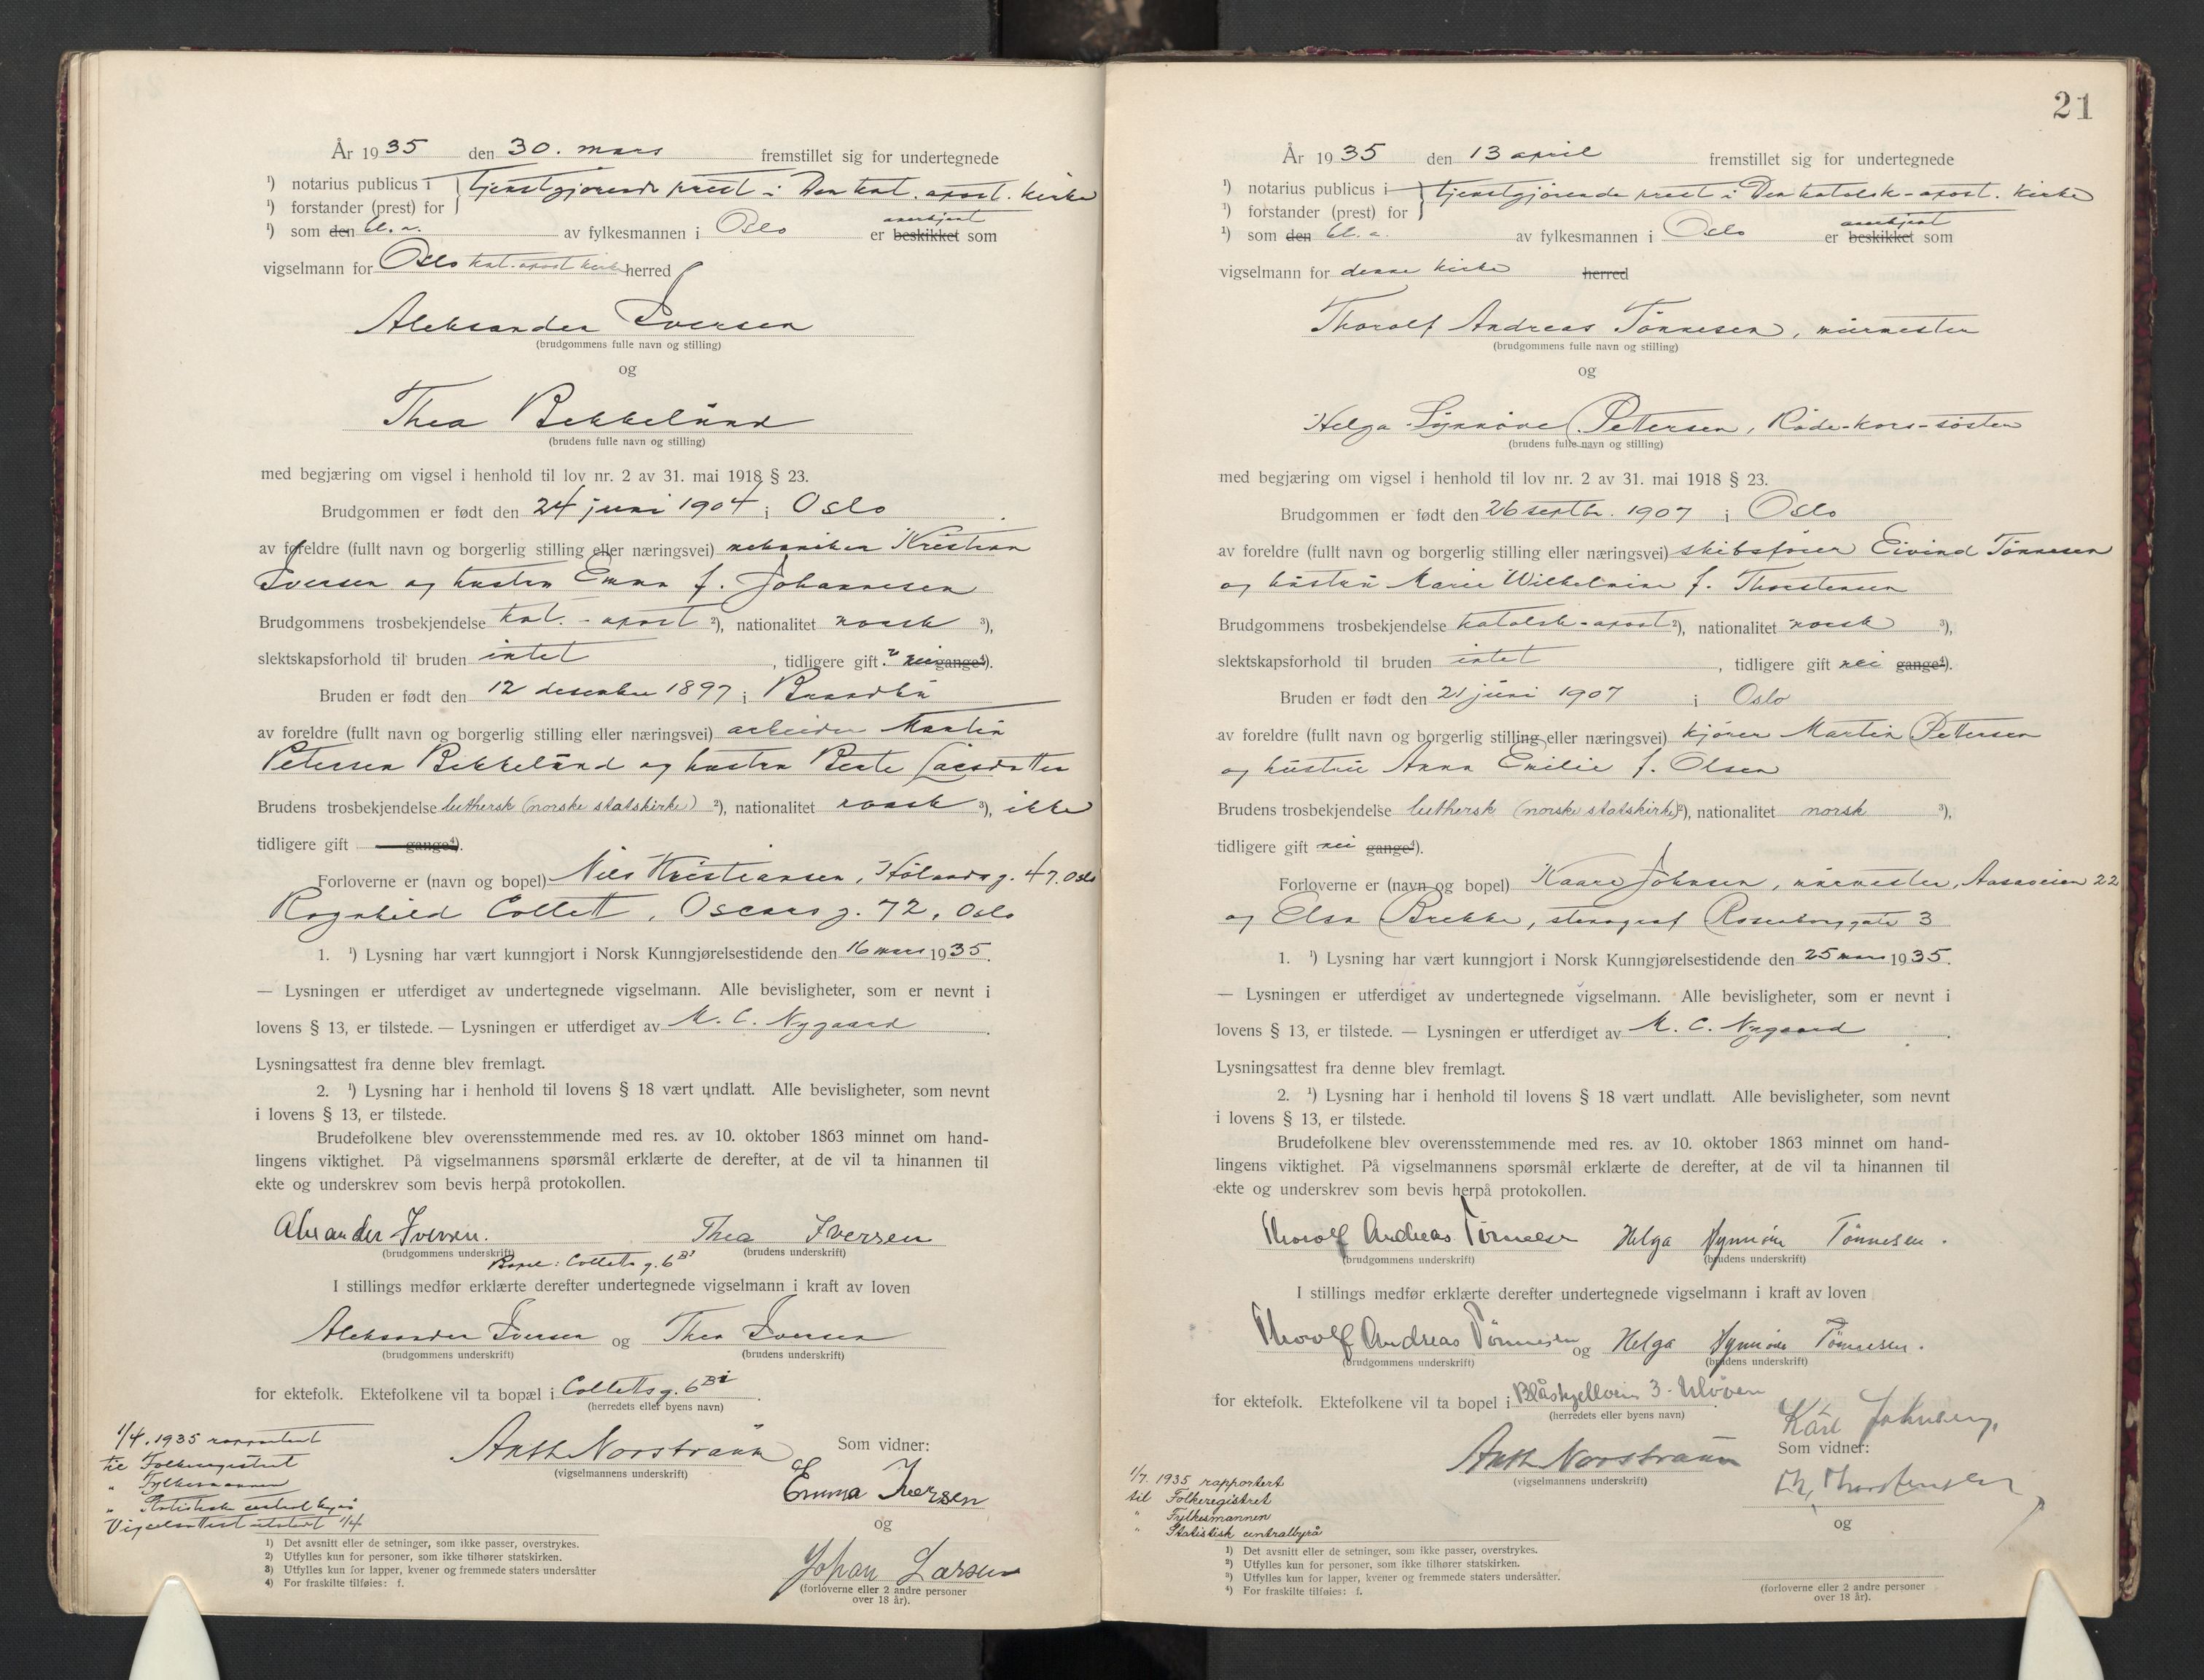 År 1935 den 30. mars fremstillet sig for undertegnede
¹) notarius publicus i } tjenstgjørende prest i Den kat. apost. kirke
¹) forstander (prest) for
anerkjent
¹) som den bl. a. av fylkesmannen i Oslo er beskikket som
vigselmann for Oslo kat.-apost kirke herred
Aleksander Iversen
(brudgommens fulle navn og stilling)
og
Thea Bekkelund
(brudens fulle navn og stilling)
med begjæring om vigsel i henhold til lov nr. 2 av 31. mai 1918 § 23.
Brudgommen er født den 24 juni 1904 i Oslo
av foreldre (fullt navn og borgerlig stilling eller næringsvei) mekaniker Kristian
Iversen og hustru Emma f. Johannesen
Brudgommens trosbekjendelse kat. - apost ²), nationalitet norsk ³),
slektskapsforhold til bruden intet, tidligere gift? nei gange⁴).
Bruden er født den 12 desember 1897 i Brandbu
av foreldre (fullt navn og borgerlig stilling eller næringsvei) arbeider Martin
Petersen Bekkelund og hustru Berte Larsdatter
Brudens trosbekjendelse luthersk (norske statskirke) ²), nationalitet norsk ³), ikke
tidligere gift gange⁴).
Forloverne er (navn og bopel) Nils Kristiansen, g. 47. Oslo
Ragnhild Collett, Oscars g. 72, Oslo
1. ¹) Lysning har vært kunngjort i Norsk Kunngjørelsestidende den 16 mars 1935.
— Lysningen er utferdiget av undertegnede vigselmann. Alle bevisligheter, som er nevnt i
lovens § 13, er tilstede. — Lysningen er utferdiget av M. C. Nygaard.
Lysningsattest fra denne blev fremlagt.
2. ¹) Lysning har i henhold til lovens § 18 vært undlatt. Alle bevisligheter, som nevnt
i lovens § 13, er tilstede.
Brudefolkene blev overensstemmende med res. av 10. oktober 1863 minnet om hand-
lingens viktighet. På vigselmannens spørsmål erklærte de derefter, at de vil ta hinannen til
ekte og underskrev som bevis herpå protokollen.
Alexander Iversen. Thea Iversen
(brudgommens underskrift) (brudens underskrift)
Bopel: Colletts g. 6 B¹
I stillings medfør erklærte derefter undertegnede vigselmann i kraft av loven
Aleksander Iversen og Thea Iversen
(brudgommens underskrift) (brudens underskrift)
for ektefolk. Ektefolkene vil ta bopæl i Colletts g. 6 B¹.
(herredets eller byens navn)
1/4. 1935 rapportert
til Folkeregistret
" Fylkesmannen
" Statistisk centralbyrå
Vigselsattest utstedt 1/4
Anth Norstraum
(vigselmannens underskrift)
Som vidner:
Emma Iversen
og
Johan Larsen
(forloverne eller 2 andre personer
over 18 år).
1) Det avsnitt eller de setninger, som ikke passer, overstrykes.
2) Utfylles kun for personer, som ikke tilhører statskirken.
3) Utfylles kun for lapper, kvener og fremmede staters undersåtter
4) For fraskilte tilføies: f.
21
År 1935 den 13 april fremstillet sig for undertegnede
¹) notarius publicus i } tjenstgjørende prest i Den katolsk-apost. kirke
¹) forstander (prest) for
anerkjent
¹) som den bl. a. av fylkesmannen i Oslo er beskikket som
vigselmann for denne kirke herred
Thorolf Andreas Tønnesen, murmester
(brudgommens fulle navn og stilling)
og
Helga Synnøve Petersen, Røde-kors-søster
(brudens fulle navn og stilling)
med begjæring om vigsel i henhold til lov nr. 2 av 31. mai 1918 § 23.
Brudgommen er født den 26 septbr. 1907 i Oslo
av foreldre (fullt navn og borgerlig stilling eller næringsvei) skibsfører Eivind Tønnesen
og hustru Marie Wilhelmine f. Thorstensen
Brudgommens trosbekjendelse katolsk-apost ²), nationalitet norsk ³),
slektskapsforhold til bruden intet, tidligere gift nei gange⁴).
Bruden er født den 21 juni 1907 i Oslo
av foreldre (fullt navn og borgerlig stilling eller næringsvei) kjører Martin Petersen
og hustru Anna Emilie f. Olsen
Brudens trosbekjendelse luthersk (norske statskirke) ²), nationalitet norsk ³),
tidligere gift nei gange⁴).
Forloverne er (navn og bopel) Kaare Johnsen, murmester, Aasaveien 22
og Elsa Brekke, stenograf Rosenborggate 3
1. ¹) Lysning har vært kunngjort i Norsk Kunngjørelsestidende den 25 mars 1935.
— Lysningen er utferdiget av undertegnede vigselmann. Alle bevisligheter, som er nevnt i
lovens § 13, er tilstede. — Lysningen er utferdiget av M. C. Nygaard.
Lysningsattest fra denne blev fremlagt.
2. ¹) Lysning har i henhold til lovens § 18 vært undlatt. Alle bevisligheter, som nevnt
i lovens § 13, er tilstede.
Brudefolkene blev overensstemmende med res. av 10. oktober 1863 minnet om hand-
lingens viktighet. På vigselmannens spørsmål erklærte de derefter, at de vil ta hinannen til
ekte og underskrev som bevis herpå protokollen.
Thorolf Andreas Tønnesen Helga Synnøve Tønnesen.
(brudgommens underskrift) (brudens underskrift)
I stillings medfør erklærte derefter undertegnede vigselmann i kraft av loven
Thorolf Andreas Tønnesen og Helga Synnøve Tønnesen.
(brudgommens underskrift) (brudens underskrift)
for ektefolk. Ektefolkene vil ta bopel i Blåskjellvein 3 - Ulvøen.
(herredets eller byens navn)
1/7. 1935 rapportert
til Folkeregistret
" Fylkesmannen
" Statistisk centralbyrå
Anth Norstraum
(vigselmannens underskrift)
Som vidner:
Th. Thorstensen
og
(forloverne eller 2 andre personer
over 18 år).
¹) Det avsnitt eller de setninger, som ikke passer, overstrykes.
²) Utfylles kun for personer, som ikke tilhører statskirken.
³) Utfylles kun for lapper, kvener og fremmede staters undersåtter.
⁴) For fraskilte tilføies: f.